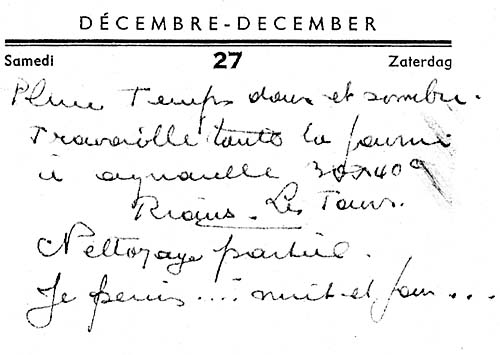 DÉCEMBRE-DECEMBER
Samedi 27 Zaterdag
Pluie Temps doux et sombre.
Travaillé toute la journée
à aquarelle 30x40
Rians - Les Tours.
Nettoyage partiel.
Je peins .... nuit et jour ...